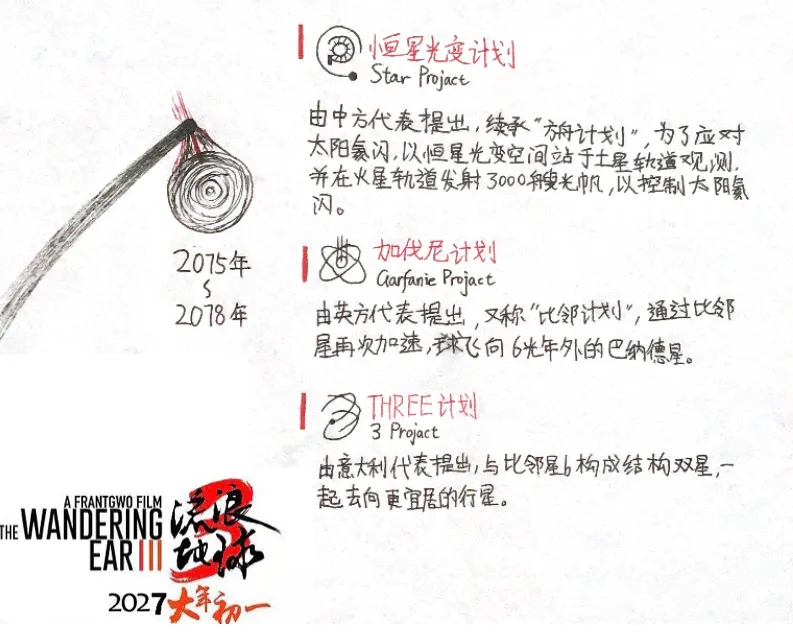 恒星光变计划
Star Projact
由中方代表提出，续承“方舟计划”，为了应对
太阳氦闪，以恒星光变空间站于土星轨道观测，
并在火星轨道发射3000艘光帆，以控制太阳氦
闪。
2015年
~
2078年
加伐尼计划
Garfanie Projact
由英方代表提出，又称“比邻计划”，通过比邻
星再次加速，飞向6光年外的巴纳德星。
THREE计划
3 Projact
由意大利代表提出，与比邻星b构成结构双星，一
起去向更宜居的行星。
A FRANTGWO FILM
THE WANDERING
EAR III
流浪
地球
3
2027大年初一